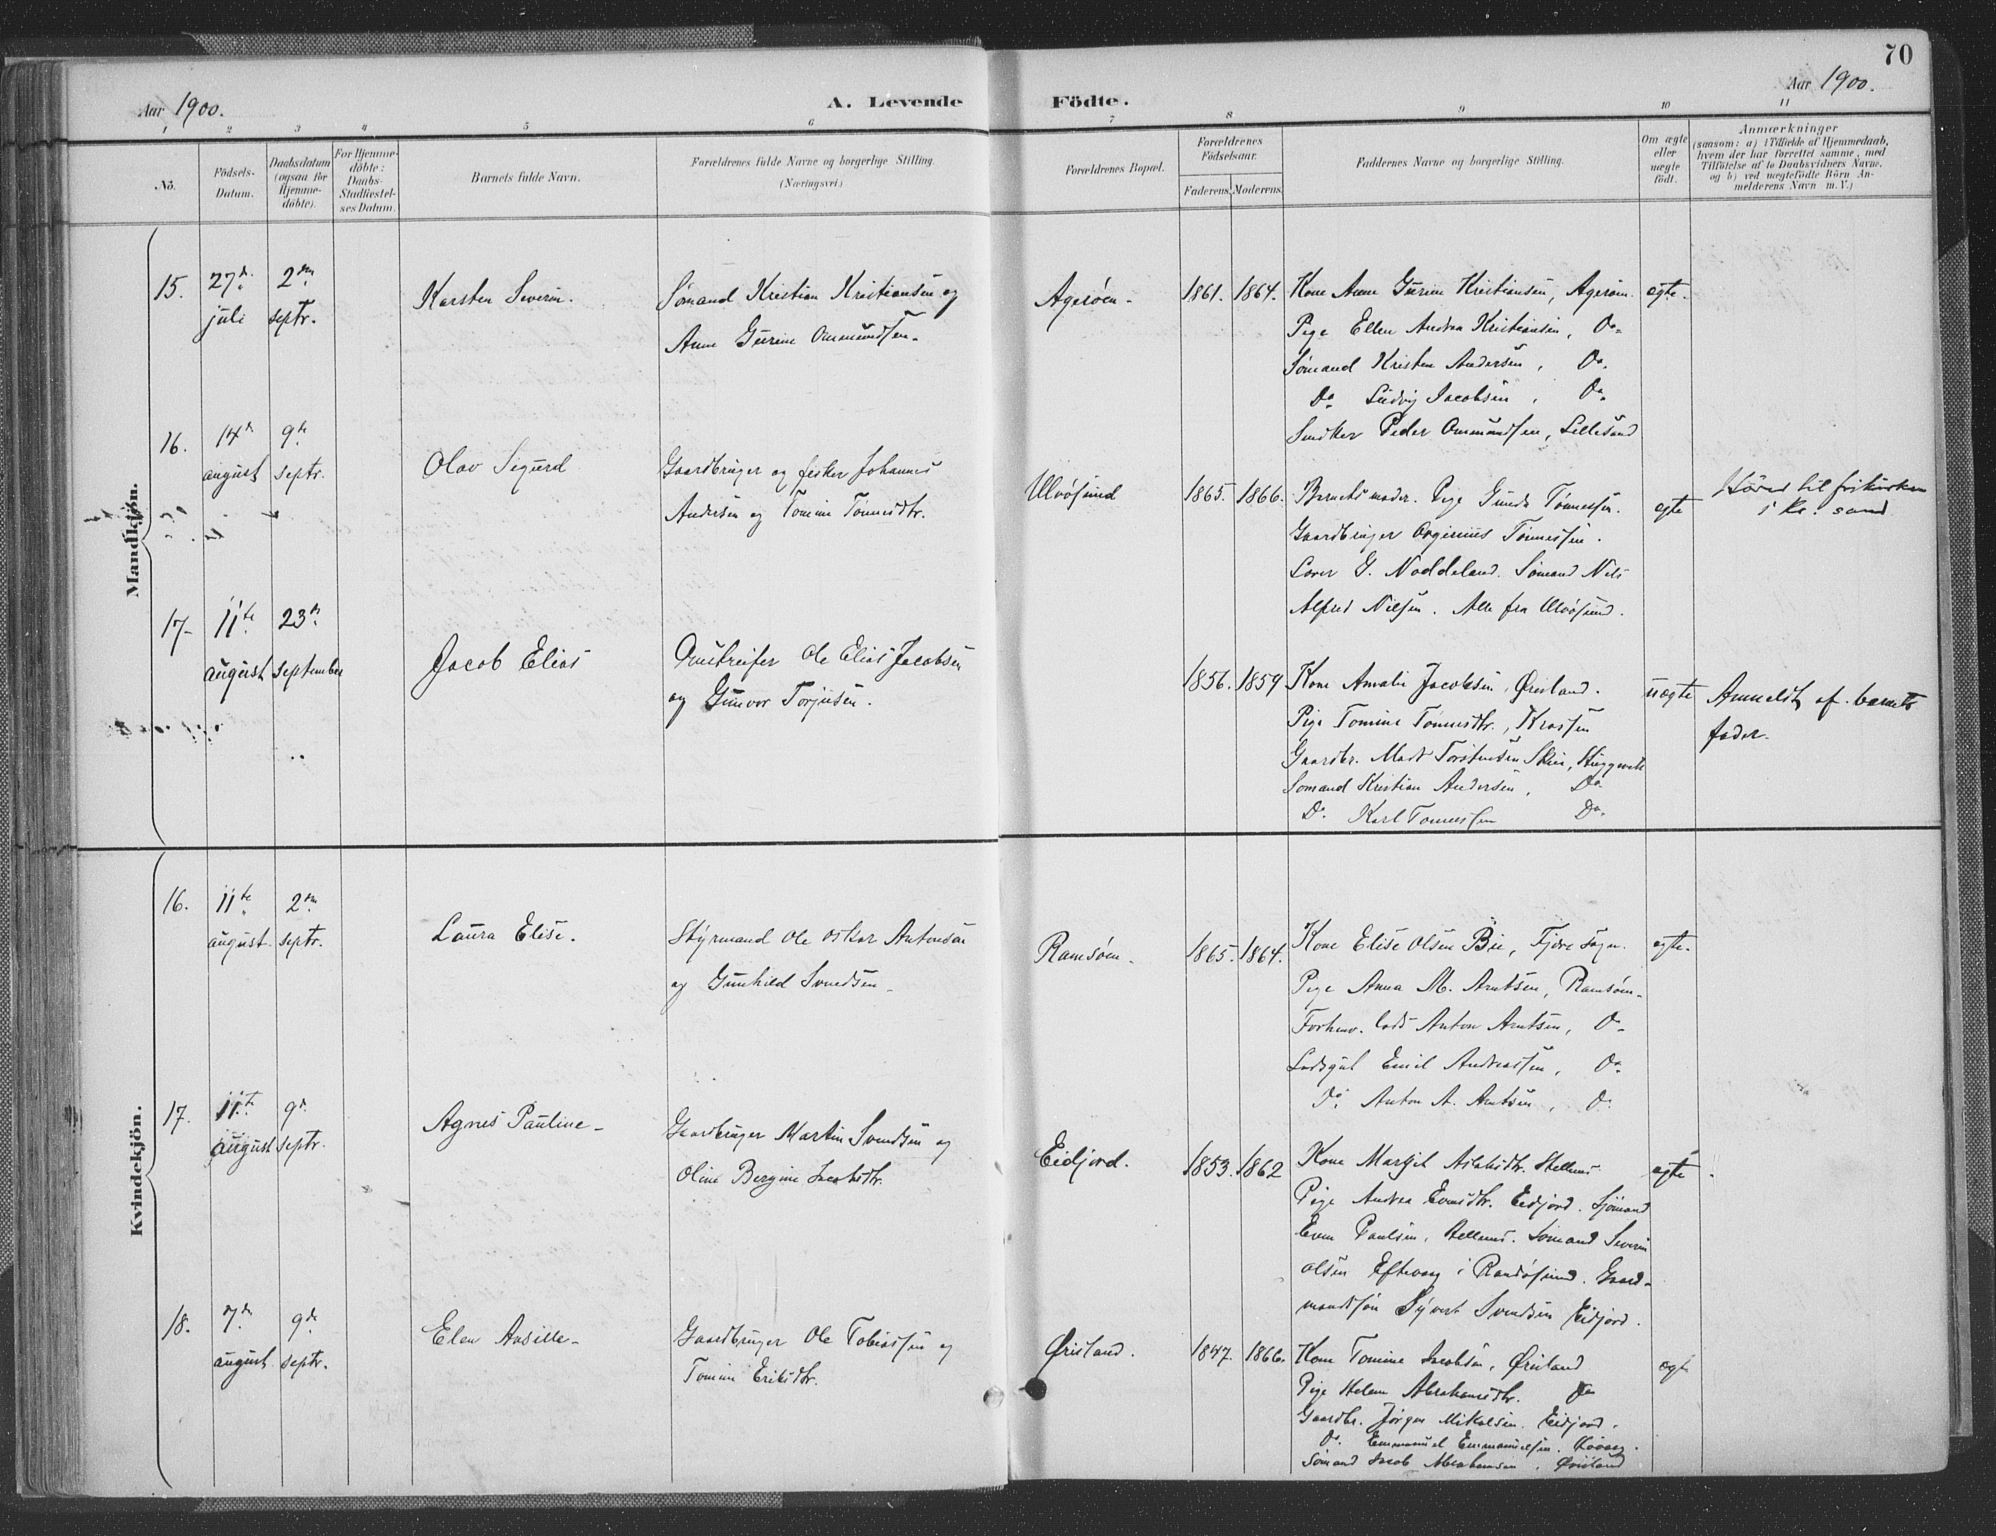 70
Aar 1900.
A. Levende Födte.
Aar 1900.
1 2 3 4 5 6 7 8 9 10 11
No.
Födsels-Datum.
Daabsdatum (ogsaa for Hjemme-döbte).
For Hjemme-döbte: Daabs-Stadfæstel-ses Datum.
Barnets fulde Navn.
Forældrenes fulde Navne og borgerlige Stilling. (Næringsvei)
Forældrenes Bopæl.
Forældrenes Födselsaar.
Faderens. Moderens.
Faddernes Navne og borgerlige Stilling.
Om ægte eller uægte födt.
Anmærkninger
(saasom: a) i Tilfælde af Hjemmedaab, hvem der har forrettet samme, med Tilföielse af to Daabsvidners Navne, og b) ved uægtefödte Börn An-melderens Navn m. V.)
Mandkjön.
15.
27de juli
2den septr.
Karsten Severin.
Sömand Kristian Kristiansen og
Anne Gurine Ommundsen.
Agerøen.
1861. 1864.
Kone Anne Gurine Kristiansen, Agerøen.
Pige Ellen Andrea Kristiansen, Do.
Sömand Kristen Andersen, Do.
Do. Ludvig Jacobsen, Do.
Peder Ommundsen, Lillesand
ægte.
16.
14de august
9de septr.
Olav Sigurd
Gaardbruger og fisker Johannes
Andersen og Tomine Tønnesdtr.
Ulvøsund
1865. 1866.
Barnets moder. Pige Gunda Tønnessen.
Gaardbruger Tønnessen.
Lærer G. Noddeland. Sömand Nils
Alfred Nilsen. Alle fra Ulvøsund.
ægte
Hører til frikirken
i Kr. sand
17.
11te august
23de september
Jacob Elias
Omstreifer Ole Elias Jacobsen
og Gunvor Torjusen.
1856. 1859
Kone Amalie Jacobsen, Ørisland.
Pige Tomine Tønnesdtr.,
Gaardbr. Mads Torstensen
Sömand Kristian Andersen, Do.
Do. Karl Tønnessen Do.
uægte
Anmeldt af barnets
fader.
Kvindekjön.
16.
11te august.
2den septr.
Laura Elise.
Styrmand Ole Oskar Antonsen
og Gunhild Svendsen.
Ramsøen.
1865. 1864.
Kone Elise Olsen Bie, Fjære sogn.
Pige Anna M. Arntsen, Ramsøen.
Forhenv. lods Anton Arntsen, Do.
Lodsgut Emil Andreassen, Do.
Do. Anton A. Arntsen, Do.
ægte.
17.
11te august
9de septr.
Agnes Pauline.
Gaardbruger Martin Svendsen og
Oline Bergine Jacobsdtr.
Eidjord.
1853. 1862
Kone Margit Aslaksdtr.
Pige Andrea Evensdtr. Eidjord. Sjömand
Even Paulsen, Sömand Severin
Olsen Eftevaag i Randøsund. Gaard-
mandssøn Syvert Svendsen Eidjord.
ægte
18.
7de august
9de septr.
Elen Ansille.
Gaardbruger Ole Tobiassen og
Tomine Eriksdtr.
Ørisland.
1847. 1866.
Kone Tomine Jacobsen, Ørisland
Pige Helene Abrahamsdtr. Do
Gaardbr. Jørgen Mikalsen. Eidjord.
Do. Emmanuel Emmanuelsen.
Sömand Jacob Abrahamsen, Ørisland
ægte